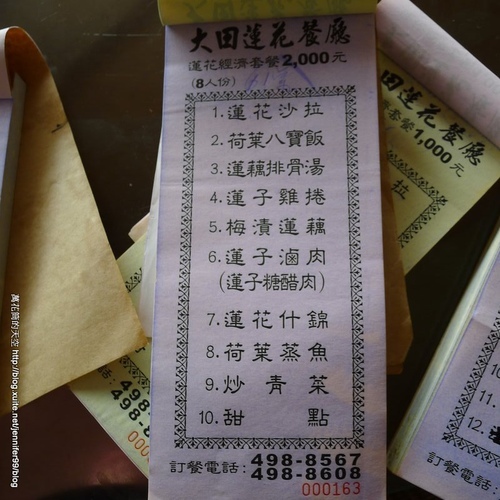 大田蓮花餐廳
蓮花經濟套餐2,000元
(8人份)
1.蓮花沙拉
2.荷葉八寶飯
3.蓮藕排骨湯
4.蓮子雞捲
5.梅漬蓮藕
6.蓮子滷肉
(蓮子糖醋肉)
7.蓮花什錦
8.荷葉蒸魚
9.炒青菜
10.甜點
訂餐電話:498-8567
498-8608
000163
田蓮花餐廳
套餐1,000元
拉
498-
498-8
000
10.
11.
12.
萬花筒的天空 http://blog.xuite.net/jennifer99/blog